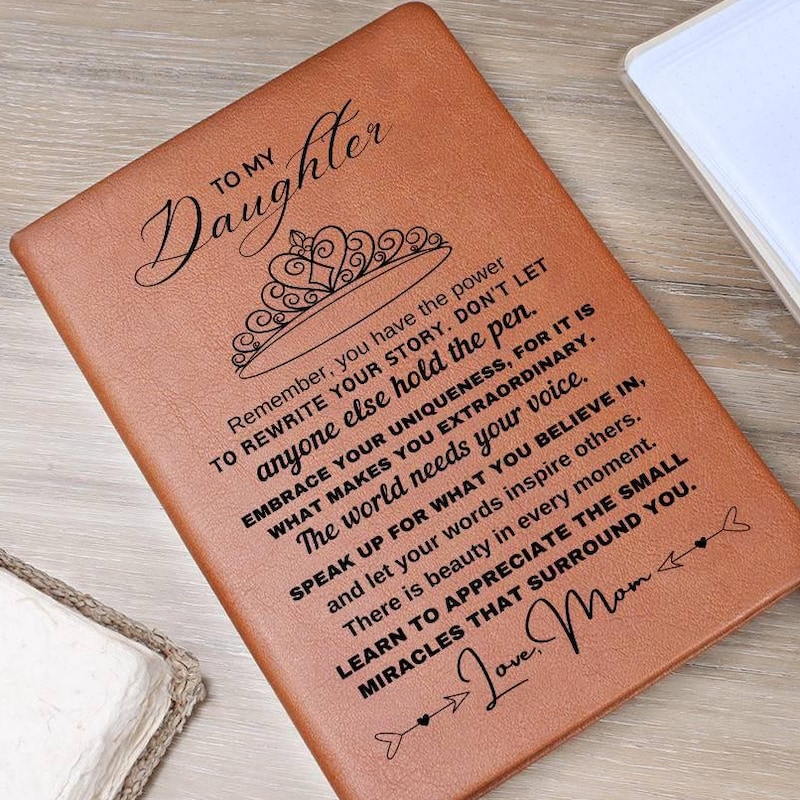 TO MY
Daughter
Remember, you have the power
TO REWRITE YOUR STORY. DON'T LET
anyone else hold the pen.
EMBRACE YOUR UNIQUENESS, FOR IT IS
WHAT MAKES YOU EXTRAORDINARY.
The world needs your voice.
SPEAK UP FOR WHAT YOU BELIEVE IN,
and let your words inspire others.
There is beauty in every moment.
LEARN TO APPRECIATE THE SMALL
MIRACLES THAT SURROUND YOU.
Love, Mom